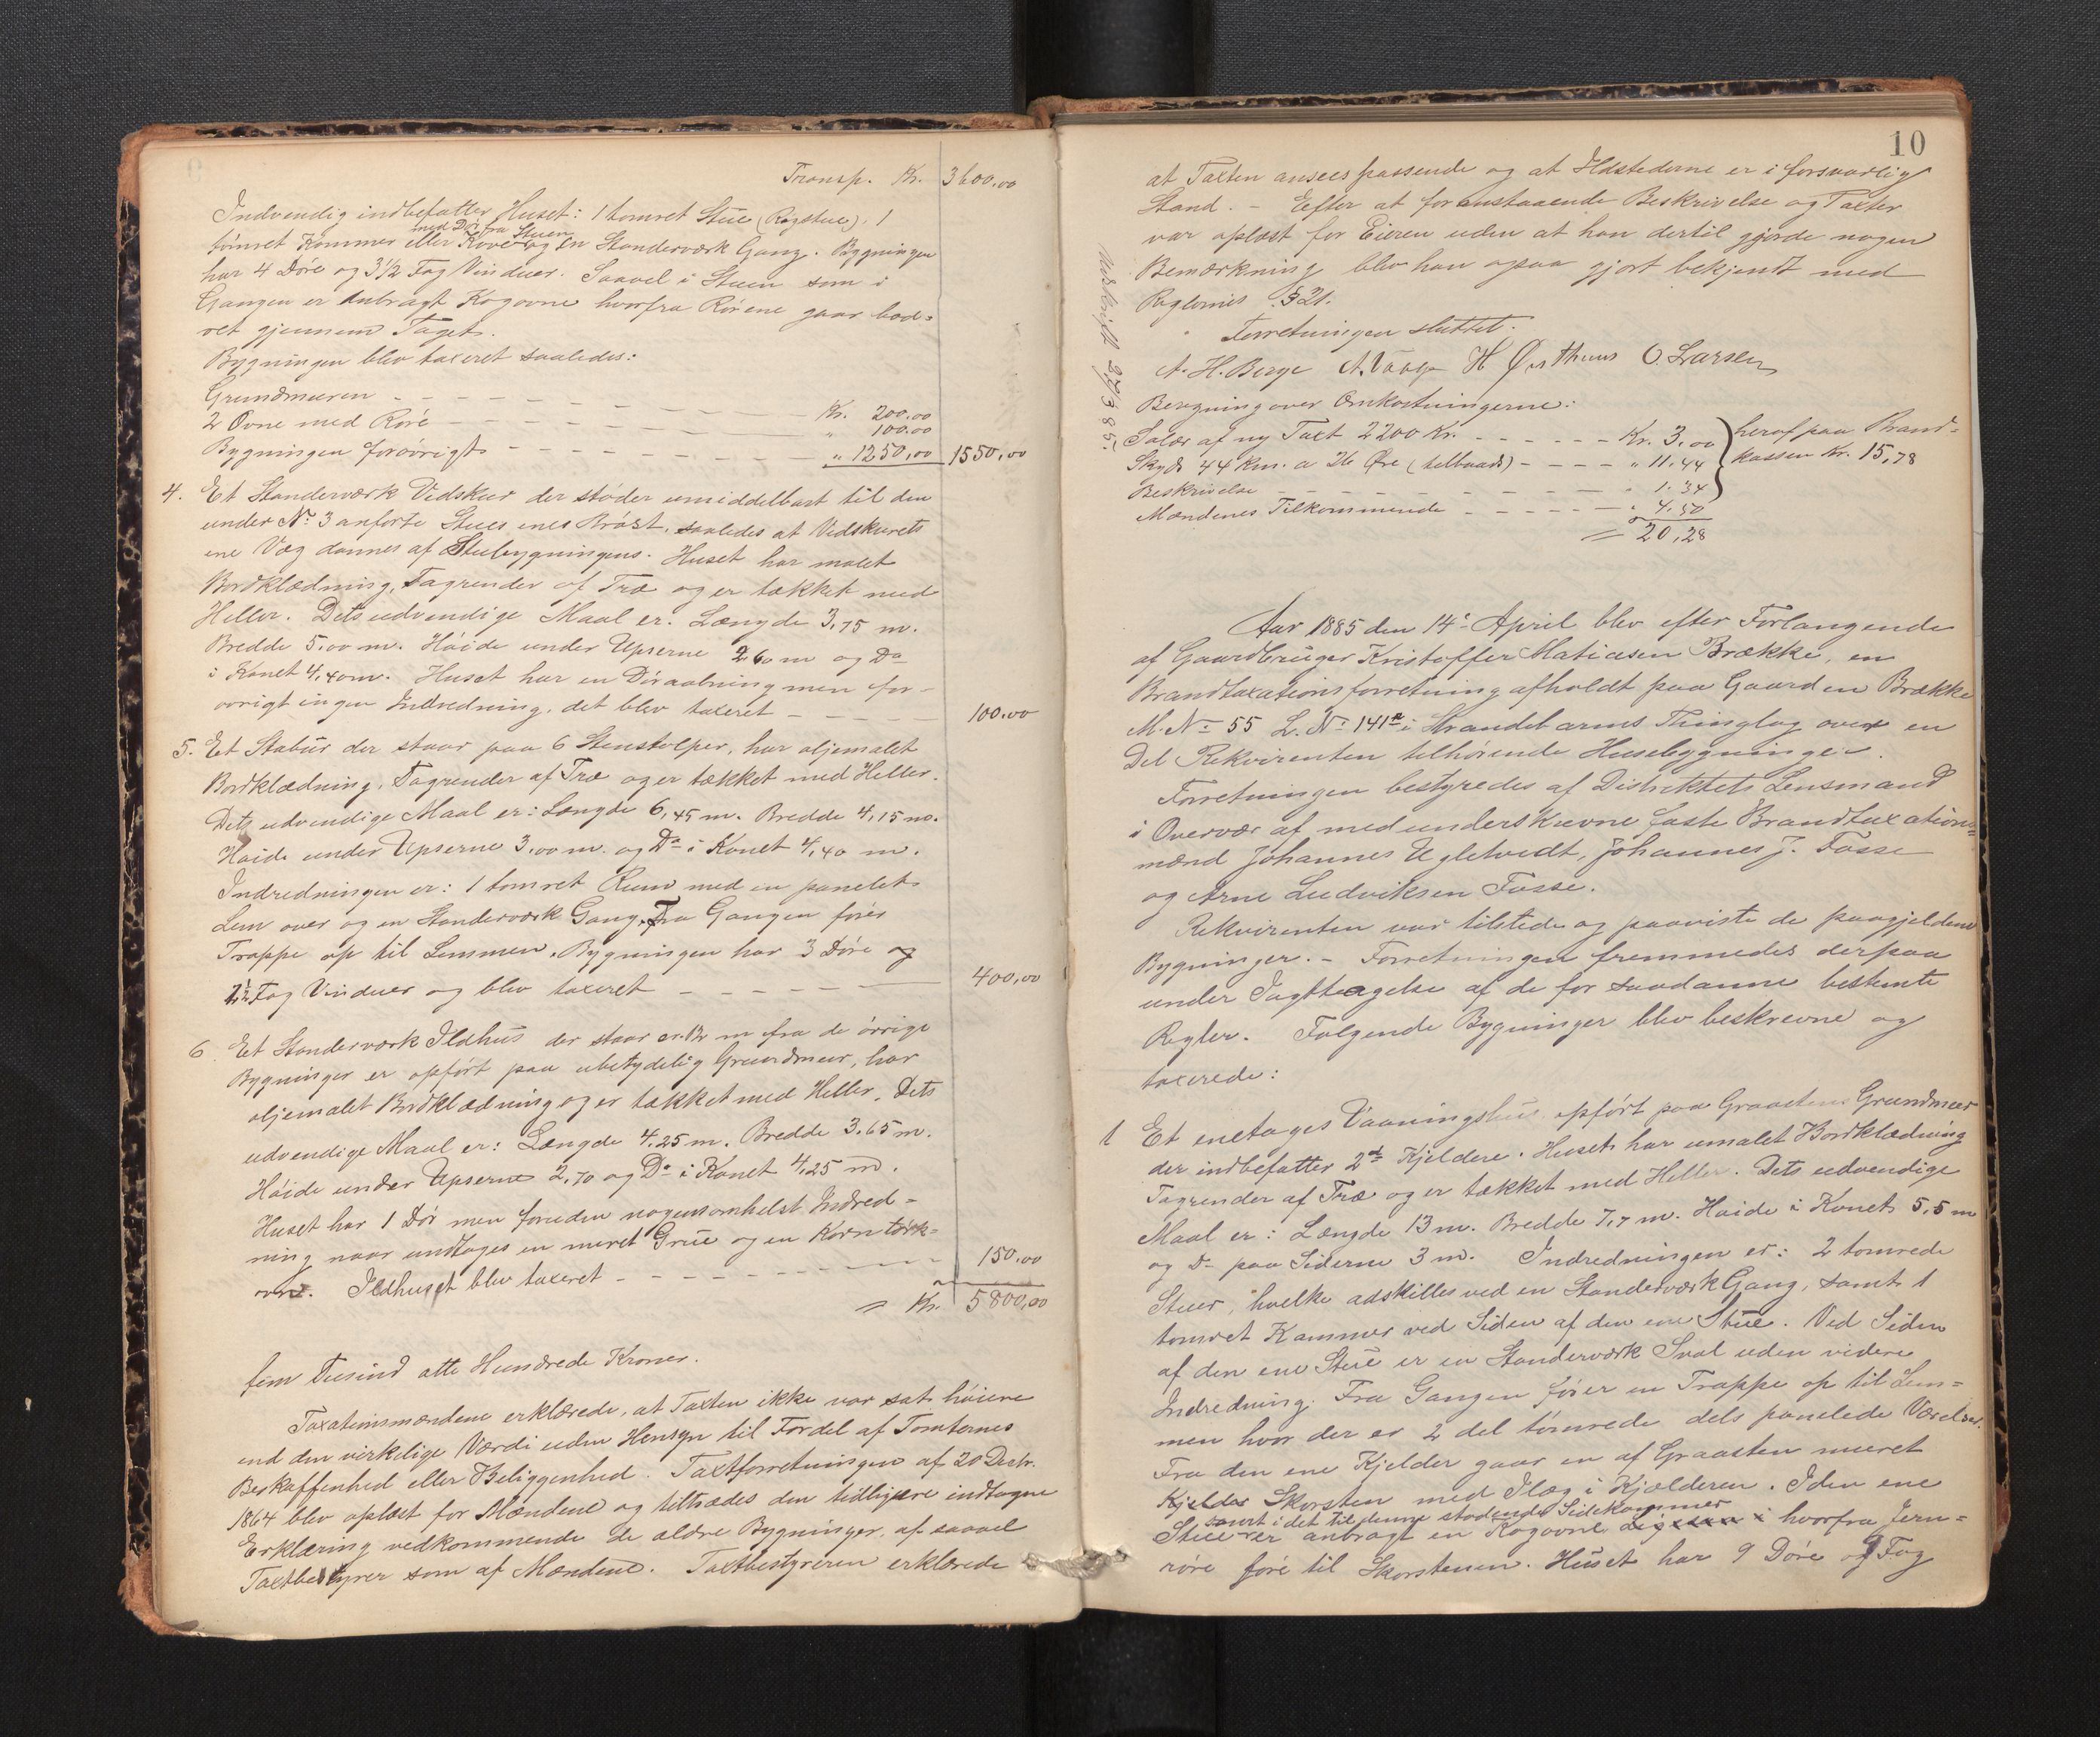 Transp. Kr. 3600,00
Indvendig indbefatter Huset: 1 tømret Stue (Røgstue), 1
med Dør fra Stuen
tømret Kammer eller Kove og en Standerværk Gang. Bygningen
har 4 Døre og 3 1/2 Fag Vinduer. Saavel i Stuen som i
Gangen er anbragt Kogovne hvorfra Rørene gaar lod=
ret gjennem Taget.
Bygningen blev taxeret saaledes:
Grundmuren - - - - - Kr. 200,00
2 Ovne med Rör - - - - - " 100,00
Bygningen forøvrigt - - - - - " 1250,00 1550,00
4. Et Standerværk Vedskur der støder umiddelbart til den
under No 3 anførte Stues enes Bröst, saaledes at Vedskurets
ene Væg dannes af Stuebygningens. Huset har malet
Bordklædning, Tagrender af Træ og er tækket med
Heller. Dets udvendige Maal er: Længde 3,75 m.
Bredde 5,00 m. Høide under Upserne 2,60 m og Do
i Rønet 4,40 m. Huset har en Døraabning men for-
øvrigt ingen Indredning, det blev taxeret - - - 100,00
5. Et Stabur der staar paa 6 Stenstolper, har oljemalet
Bordklædning, Tagrender af Træ og er tækket med Heller.
Dets udvendige Maal er: Længde 6,45 m. Bredde 4,15 m.
Høide under Upserne 3,00 m. og Do i Rønet 4,40 m.
Indredningen er: 1 tømret Rum med en panelet
Lem over og en Standerværk Gang. Fra Gangen fører
Trappe op til Lemmen. Bygningen har 3 Døre og
1 1/2 Fag Vinduer og blev taxeret - - - - - 400,00
6. Et Standerværk Ildhus der staar ca. 12 m fra de øvrige
Bygninger er opført paa ubetydelig Grundmur, har
oljemalet Bordklædning og er tækket med Heller. Dets
udvendige Maal er: Længde 4,25 m. Bredde 3,65 m.
Høide under Upserne 2,70 og Do i Rønet 4,25 m.
Huset har 1 Dør men foruden nogensomhelst Indred=
ning naar undtages en muret Grue og en Korntørk=
ovn. Ildhuset blev taxeret - - - - - 150,00
= Kr. 5800,00
fem Tusind otte Hundrede Kroner.
Taxationsmændene erklærede, at Taxten ikke var sat høiere
end den virkelige Værdi uden Hensyn til Fordel af Tomternes
Beskaffenhed eller Beliggenhed. Taxtforretningen af 20 Decbr.
1864 blev oplæst for Mændene og tiltrædes den tidligere indtagne
Erklæring vedkommende de ældre Bygninger, af saavel
Taxtbestyrer som af Mændene. Taxtbestyreren erklærede
10
at Taxten ansees passende og at Ildstederne er i forsvarlig
Stand. - Efter at foranstaaende Beskrivelse og Taxter
var oplæst for Eieren uden at han dertil gjorde nogen
Bemærkning blev han ogsaa gjort bekjendt med
Reglernes § 21.
Forretningen sluttet.
A. H. Berge A. Vaage H Østhuus O. Larsen
Udskrift 27/3 85.
Beregning over Omkostningerne:
Salær af ny Taxt 2200 Kr. - - - - - Kr. 3,00
Skyds 44 km. a 26 Øre (tilbaads) - - - - " 11,44
Beskrivelse - - - - - " 1.34
heraf paa Brand=
kassen Kr. 15,78
Mændenes Tilkommende - - - - " 4,50
= 20,28
Aar 1885 den 14de April blev efter Forlangende
af Gaardbruger Kristoffer Matiasen Brække, en
Brandtaxationsforretning afholdt paa Gaarden Brække
M. No 55 L. No 141a i Strandebarms Thinglag over en
Del Rekvirenten tilhørende Husebygninger.
Forretningen bestyredes af Distriktets Lensmand
i Overvær af medunderskrevne faste Brandtaxations=
mænd Johannes Ugletvedt, Johannes J. Fosse
og Arne Ludviksen Fosse.
Rekvirenten var tilstede og paaviste de paagjeldene
Bygninger. - Forretningen fremmedes derpaa
under Iagttagelse af de for saadanne bestemte
Regler. Følgende Bygninger blev beskrevne og
taxerede:
1 Et enetages Vaaningshus opført paa Graastens Grundmur
der indbefatter 2de Kjeldere. Huset har umalet Bordklædning
Tagrender af Træ og er tækket med Heller. Dets udvendige
Maal er: Længde 13 m. Bredde 7,7 m. Høide i Rønet 5,5 m
og Do paa Siderne 3 m. Indredningen er: 2 tømrede
Stuer, hvilke adskilles ved en Standerværk Gang, samt 1
tømret Kammer ved Siden af den ene Stue. Ved Siden
af den ene Stue er en Standerværk Sval uden videre
Indredning. Fra Gangen fører en Trappe op til Lem=
men hvor der er 2 del tømrede dels panelede Værelser.
Fra den ene Kjelder gaar en af Graasten muret
Kjelder Skorsten med Ilæg i Kjælderen. I den ene
samt i det til denne stødende Sidekammer
Stue er anbragt en Kogovne hvorfra Jern=
røre føre til Skorstenen. Huset har 9 Døre og 9 Fag